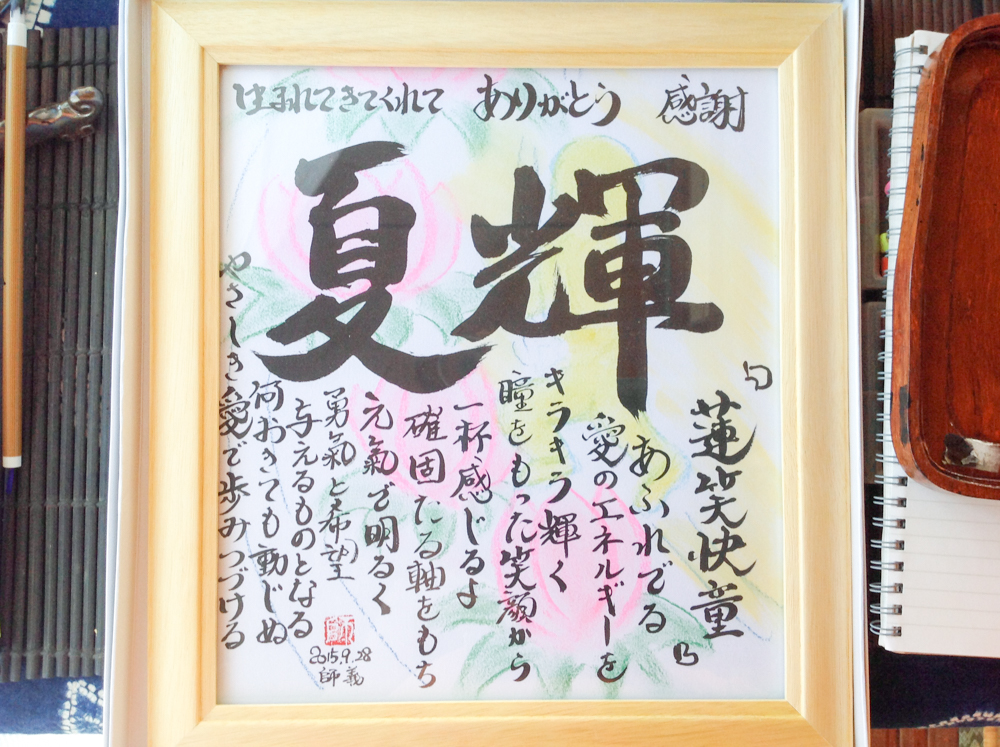 生まれてきてくれて ありがとう 感謝
夏輝
「蓮笑快童」
あふれでる
愛のエネルギーを
キラキラ輝く
瞳をもった笑顔から
一杯感じるよ
確固たる軸をもち
元氣で明るく
勇氣と希望
与えるものとなる
何おきても動じぬ
やさしき愛で歩みつづける
2015.9.28
師義